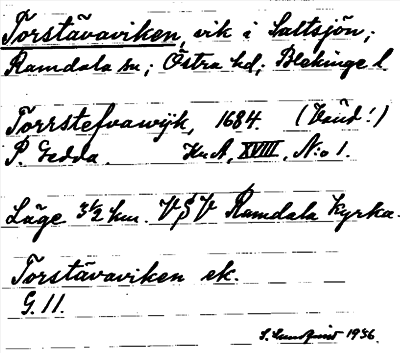 Torstävaviken, vik i Saltsjön;
Ramdala sn; Östra hd; Blekinge l.
Torrstefvawijk, 1684. (Vänd!)
P. Gedda. Kr. A, XVIII, N:o 1.
Läge 3½ km. V Ramdala Kyrka.
Torstävaviken ek.
G. 11.
S. Lundquist 1936.